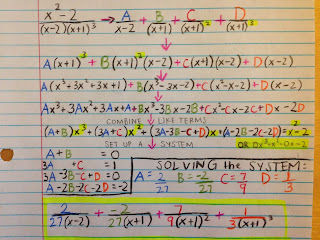 x² - 2 / (x-2)(x+1)³ → A/x-2 + B/(x+1) + C/(x+1)² + D/(x+1)³
A(x+1)³ + B(x+1)²(x-2) + C(x+1)(x-2) + D(x-2)
A(x³+3x²+3x+1) + B(x³-3x-2) + C(x²-x-2) + D(x-2)
Ax³+3Ax²+3Ax+A+Bx³-3Bx-2B+Cx²-Cx-2C+Dx-2D
COMBINE LIKE TERMS
(A+B)x³+(3A+C)x²+(3A-3B-C+D)x+(A-2B-2C-2D)=x²-2
SET UP A SYSTEM OR 0x³+x²+0x-2
A+B =0
3A +C =1
3A-3B-C+D=0
A-2B-2C-2D=-2
SOLVING the SYSTEM:
A=2/27 B=-2/27 C=7/9 D=1/3
2/27(x-2) + -2/27(x+1) + 7/9(x+1)² + 1/3(x+1)³